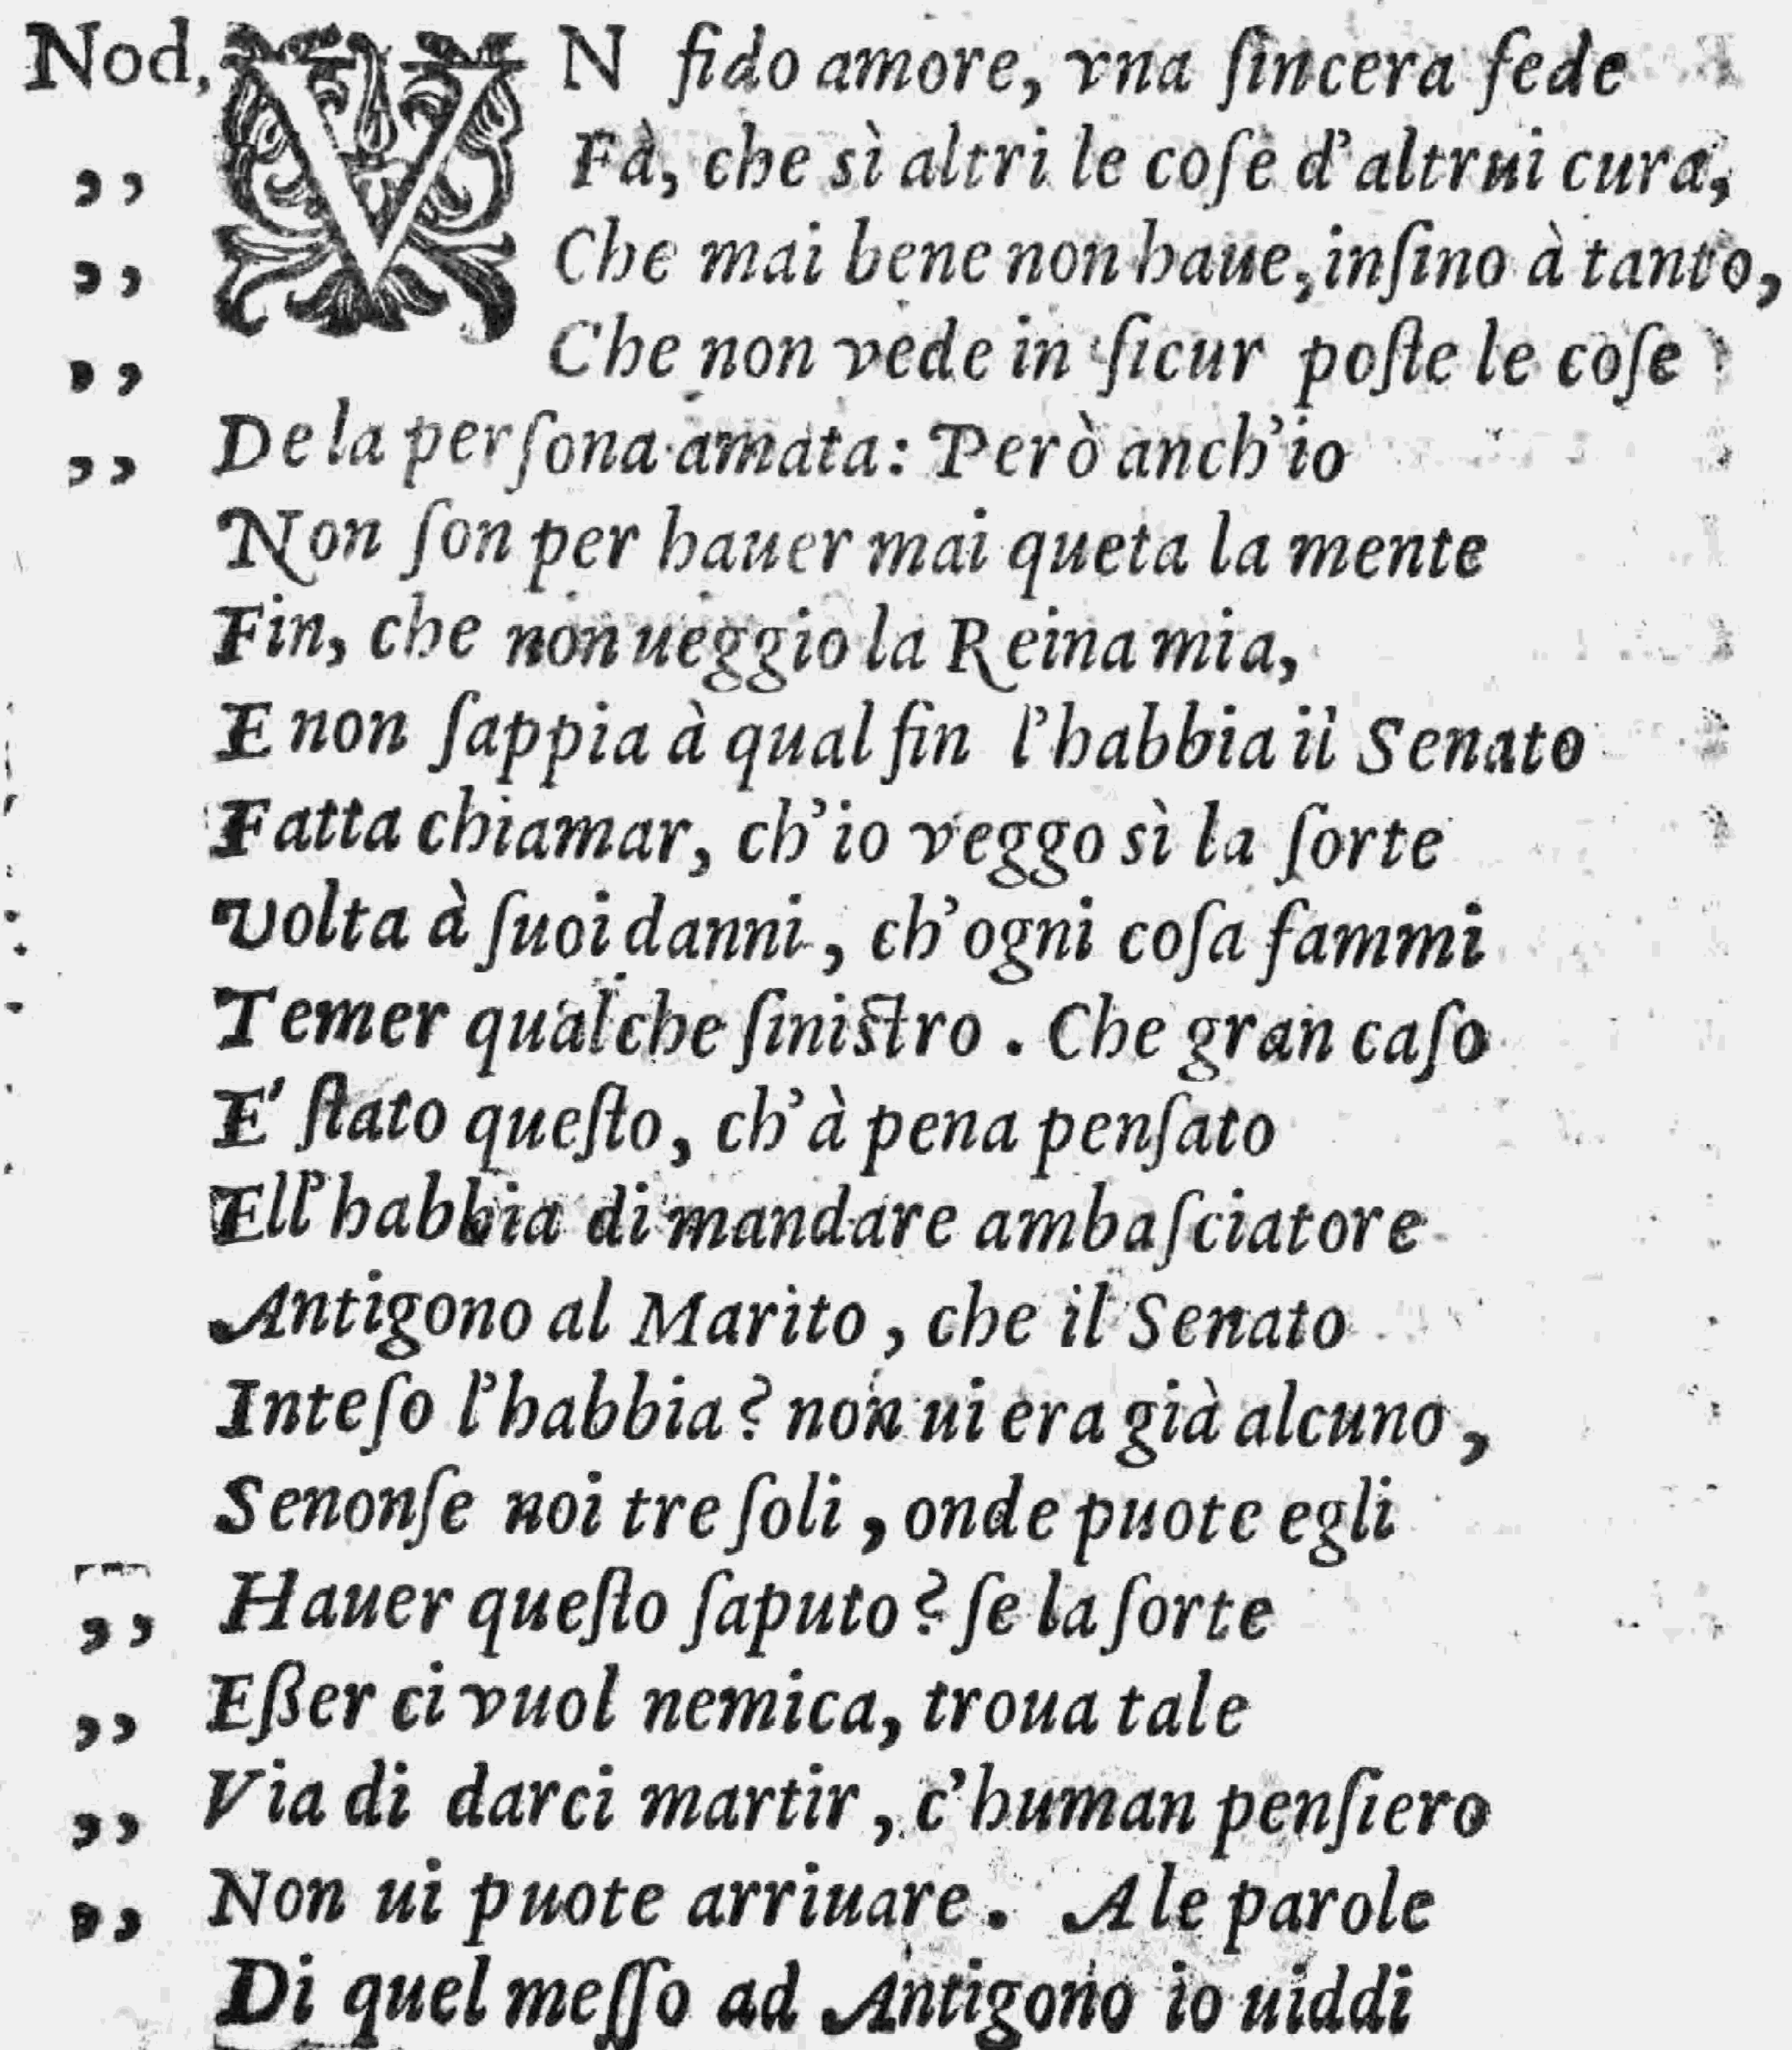 Nod, VN fido amore, vna ſincera fede
,, Fà, che sì altri le coſe d'altrui cura,
,, Che mai bene non haue, inſino à tanto,
,, Che non vede in ſicur poſte le coſe
,, De la perſona amata: Però anch'io
Non ſon per hauer mai queta la mente
Fin, che non ueggio la Reina mia,
E non ſappia à qual fin l'habbia il Senato
Fatta chiamar, ch'io veggo sì la ſorte
Volta à ſuoi danni, ch'ogni coſa fammi
Temer qualche ſiniſtro. Che gran caſo
E' ſtato queſto, ch'à pena penſato
Ell'habbia di mandare ambaſciatore
Antigono al Marito, che il Senato
Inteſo l'habbia? non ui era già alcuno,
Senonſe noi tre ſoli, onde puote egli
,, Hauer queſto ſaputo? ſe la ſorte
,, Eßer ci vuol nemica, troua tale
,, Via di darci martir, c'human penſiero
,, Non ui puote arriuare. A le parole
Di quel meſſo ad Antigono io uiddi